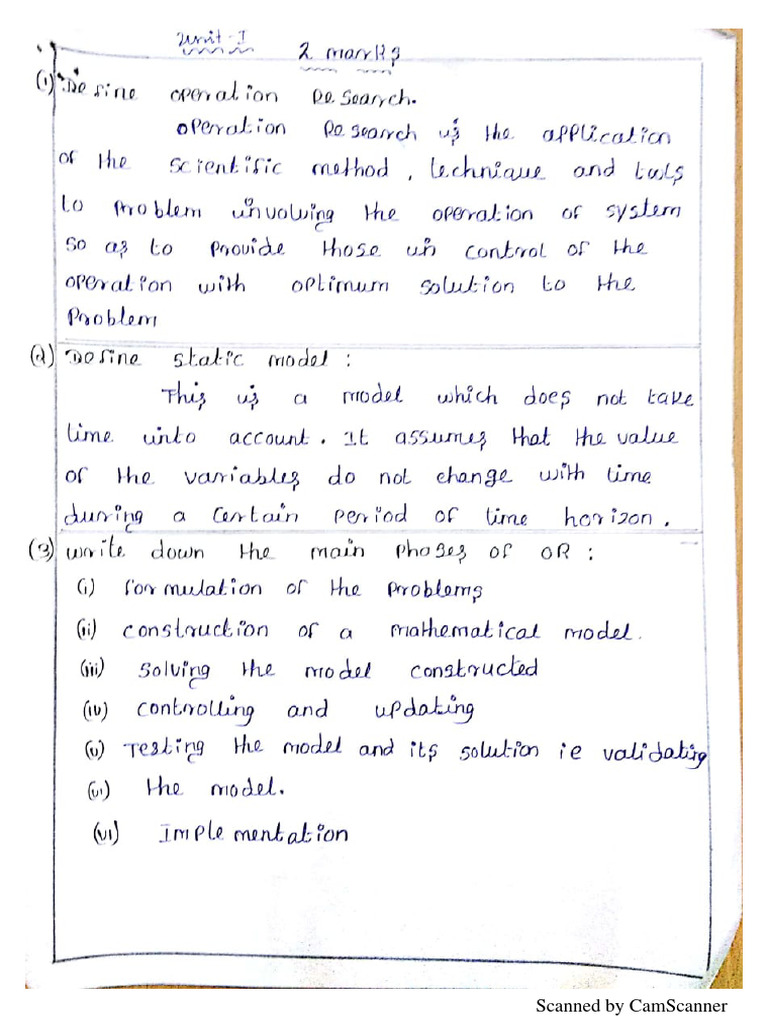 Unit - I
2 marks
(1) Define operation Research.
operation Research is the application
of the scientific method, technique and tools
to problem involving the operation of system
so as to provide those in control of the
operation with optimum solution to the
Problem
(2) Define static model :
This is a model which does not take
time into account. It assumes that the value
of the variables do not change with time
during a certain period of time horizon.
(3) write down the main phases of OR :
(i) formulation of the problems
(ii) construction of a mathematical model.
(iii) solving the model constructed
(iv) controlling and updating
(v) Testing the model and its solution ie validating
(vi) the model.
(vi) Implementation
Scanned by CamScanner